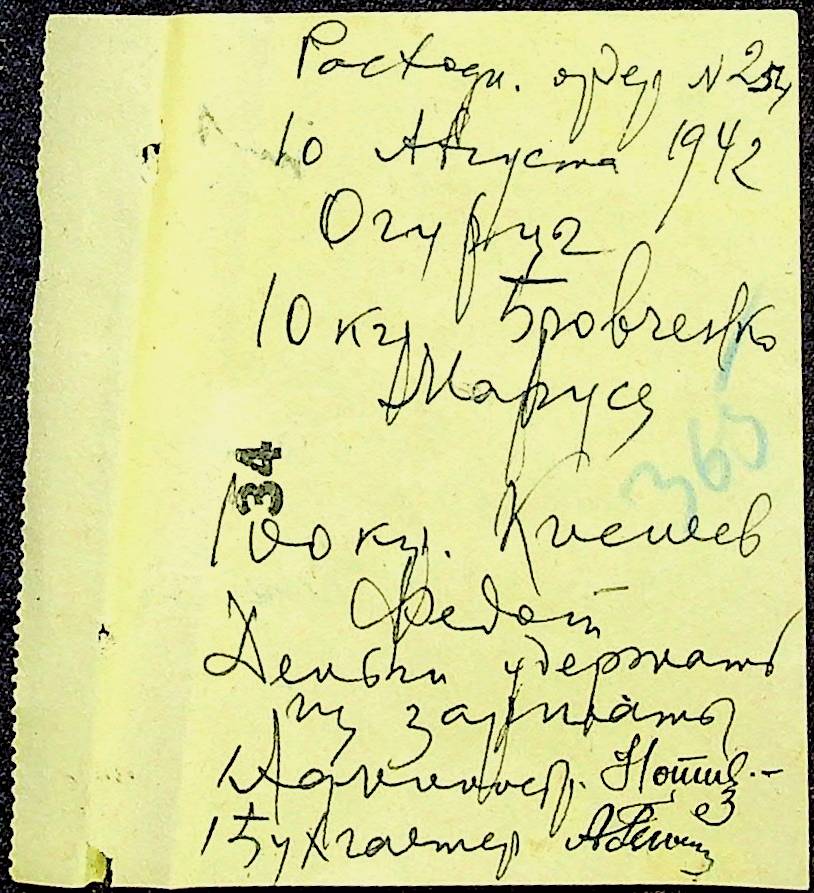 Расходн. ордер N 254
10 Августа 1942
Огурца
10 кг. Бровченко
Марусе
34
365
100 кг. Киешев
Федот
Деньги удержать
из зарплаты
Администр.
Бухгалтер